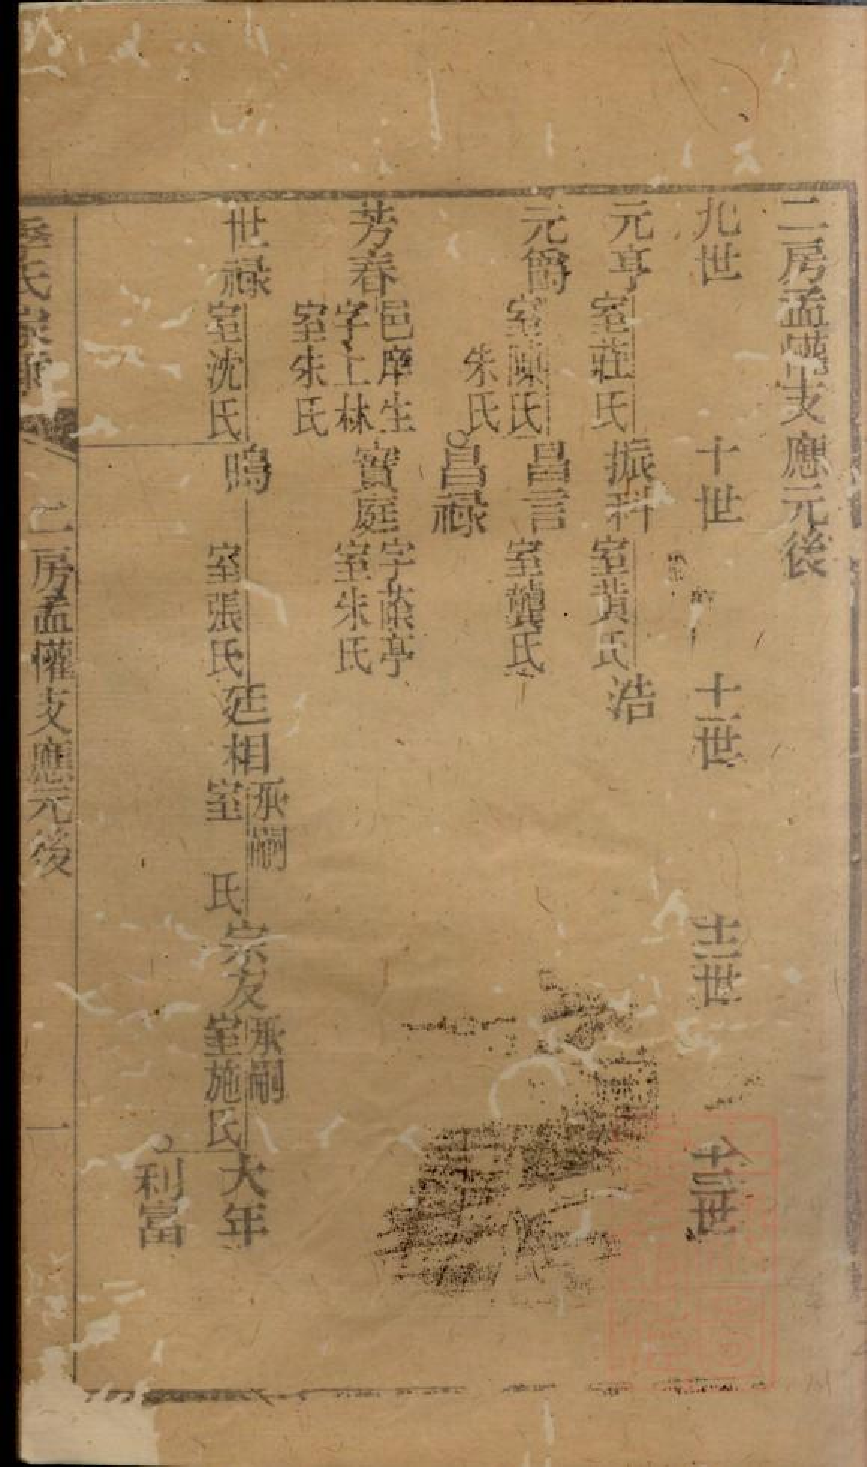 二房孟懽支應元後
九世 十世 十一世 十二世 十三世
元亨 室莊氏 振科 室黃氏 浩
元爵 室陳氏 昌言 室龔氏
朱氏 昌祿
芳春 邑庠生 字上林 室朱氏 寶庭 字蔭亭 室朱氏
世祿 室沈氏 鳴 室張氏 廷相 承嗣 室 氏 宗友 承嗣 室施氏 大年
利富
季氏家乘 二房孟懽支應元後 一